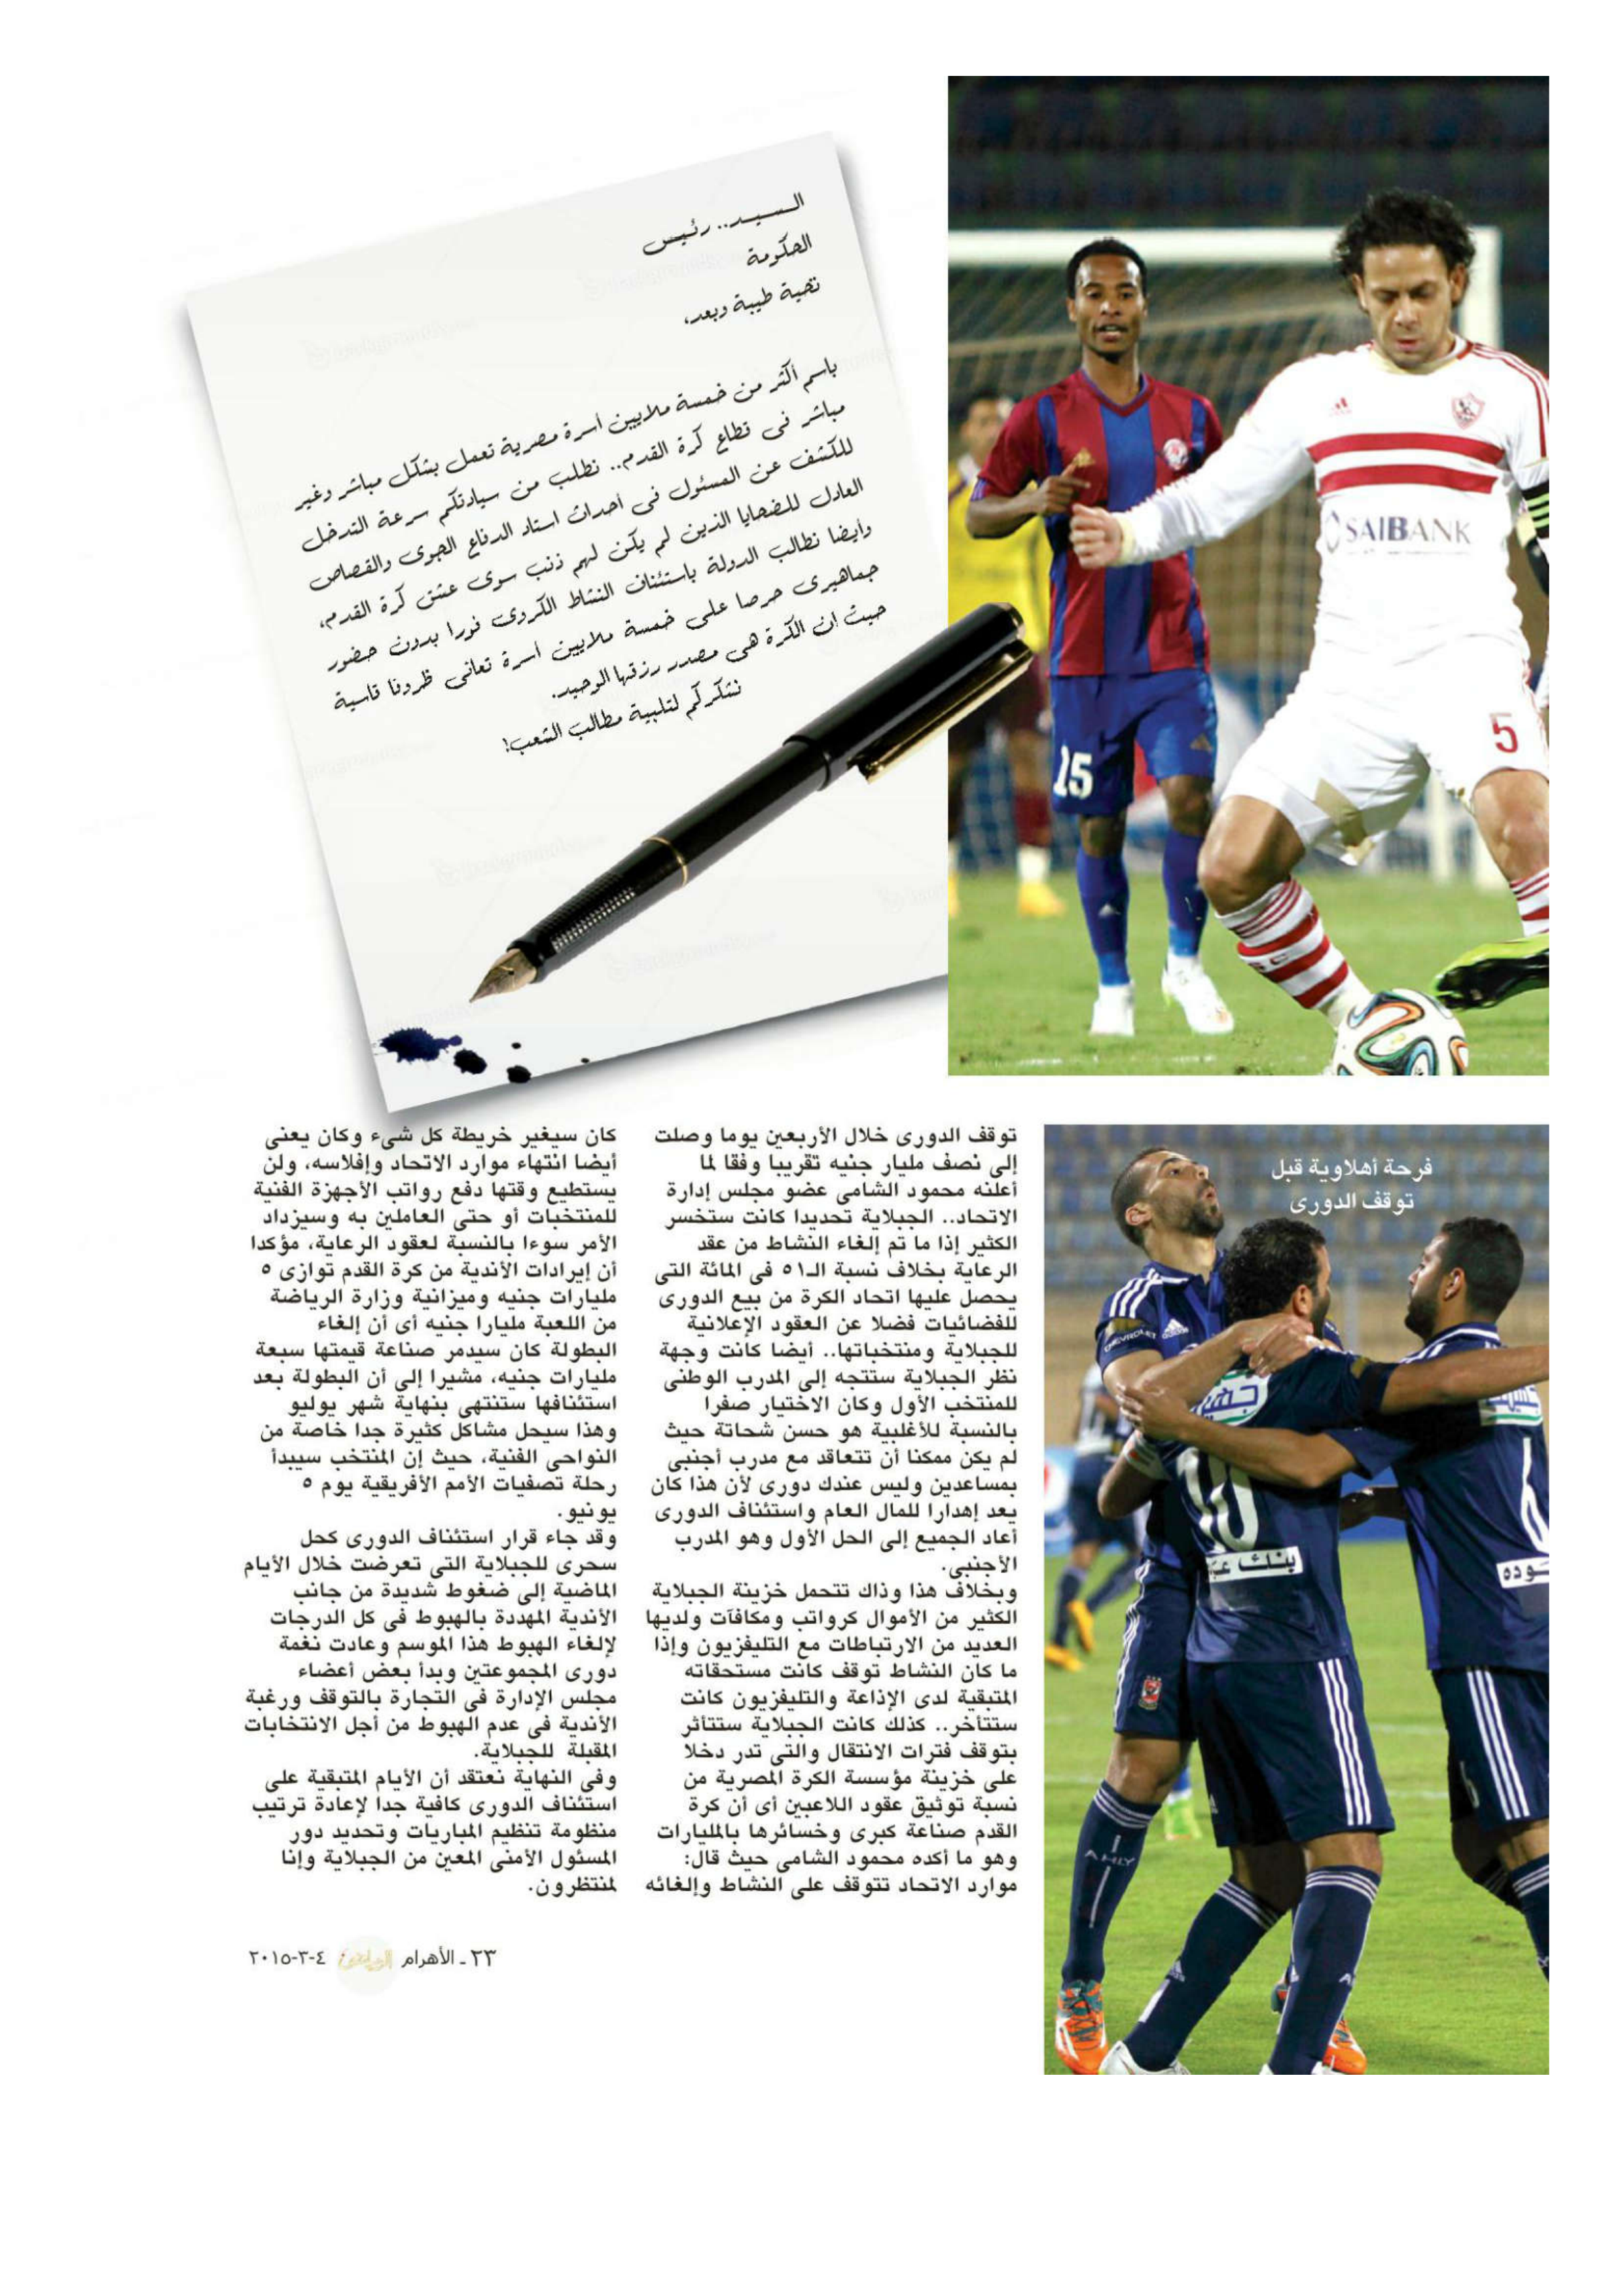 السيد.. رئيس
الحكومة
تحية طيبة وبعد،
باسم أكثر من خمسة ملايين أسرة مصرية تعمل بشكل مباشر وغير
مباشر فى قطاع كرة القدم.. نطلب من سيادتكم سرعة التدخل
للكشف عن المسئول فى أحداث استاد الدفاع الجوى والقصاص
العادل للضحايا الذين لم يكن لهم ذنب سوى عشق كرة القدم،
وأيضا نطالب الدولة باستئناف النشاط الكروى فورا بدون حضور
جماهيرى حرصا على خمسة ملايين أسرة تعانى ظروفا قاسية
حيث ان الكرة هى مصدر رزقها الوحيد.
نشكركم لتلبية مطالب الشعب!
SAIBANK
5
15
فرحة أهلاوية قبل
توقف الدورى
توقف الدورى خلال الأربعين يوما وصلت
إلى نصف مليار جنيه تقريبا وفقا لما
أعلنه محمود الشامى عضو مجلس إدارة
الاتحاد.. الجبلاية تحديدا كانت ستخسر
الكثير إذا ما تم إلغاء النشاط من عقد
الرعاية بخلاف نسبة الـ٥١ فى المائة التى
يحصل عليها اتحاد الكرة من بيع الدورى
للفضائيات فضلا عن العقود الإعلانية
للجبلاية ومنتخباتها.. أيضا كانت وجهة
نظر الجبلاية ستتجه إلى المدرب الوطنى
للمنتخب الأول وكان الاختيار صفرا
بالنسبة للأغلبية هو حسن شحاتة حيث
لم يكن ممكنا أن تتعاقد مع مدرب أجنبى
بمساعدين وليس عندك دورى لأن هذا كان
يعد إهدارا للمال العام واستئناف الدورى
أعاد الجميع إلى الحل الأول وهو المدرب
الأجنبى.
وبخلاف هذا وذاك تتحمل خزينة الجبلاية
الكثير من الأموال كرواتب ومكافآت ولديها
العديد من الارتباطات مع التليفزيون وإذا
ما كان النشاط توقف كانت مستحقاته
المتبقية لدى الإذاعة والتليفزيون كانت
ستتأخر.. كذلك كانت الجبلاية ستتأثر
بتوقف فترات الانتقال والتى تدر دخلا
على خزينة مؤسسة الكرة المصرية من
نسبة توثيق عقود اللاعبين أى أن كرة
القدم صناعة كبرى وخسائرها بالمليارات
وهو ما أكده محمود الشامى حيث قال:
موارد الاتحاد تتوقف على النشاط وإلغائه
كان سيغير خريطة كل شىء وكان يعنى
أيضا انتهاء موارد الاتحاد وإفلاسه، ولن
يستطيع وقتها دفع رواتب الأجهزة الفنية
للمنتخبات أو حتى العاملين به وسيزداد
الأمر سوءا بالنسبة لعقود الرعاية، مؤكدا
أن إيرادات الأندية من كرة القدم توازى ٥
مليارات جنيه وميزانية وزارة الرياضة
من اللعبة مليارا جنيه أى أن إلغاء
البطولة كان سيدمر صناعة قيمتها سبعة
مليارات جنيه، مشيرا إلى أن البطولة بعد
استئنافها ستنتهى بنهاية شهر يوليو
وهذا سيحل مشاكل كثيرة جدا خاصة من
النواحى الفنية، حيث إن المنتخب سيبدأ
رحلة تصفيات الأمم الأفريقية يوم ٥
يونيو.
وقد جاء قرار استئناف الدورى كحل
سحرى للجبلاية التى تعرضت خلال الأيام
الماضية إلى ضغوط شديدة من جانب
الأندية المهددة بالهبوط فى كل الدرجات
لإلغاء الهبوط هذا الموسم وعادت نغمة
دورى المجموعتين وبدأ بعض أعضاء
مجلس الإدارة فى التجارة بالتوقف ورغبة
الأندية فى عدم الهبوط من أجل الانتخابات
المقبلة للجبلاية.
وفى النهاية نعتقد أن الأيام المتبقية على
استئناف الدورى كافية جدا لإعادة ترتيب
منظومة تنظيم المباريات وتحديد دور
المسئول الأمنى المعين من الجبلاية وإنا
لمنتظرون.
CHEVROLET
10
AHLY
٢٣ ـ الأهرام الرياضى ٤-٣-٢٠١٥